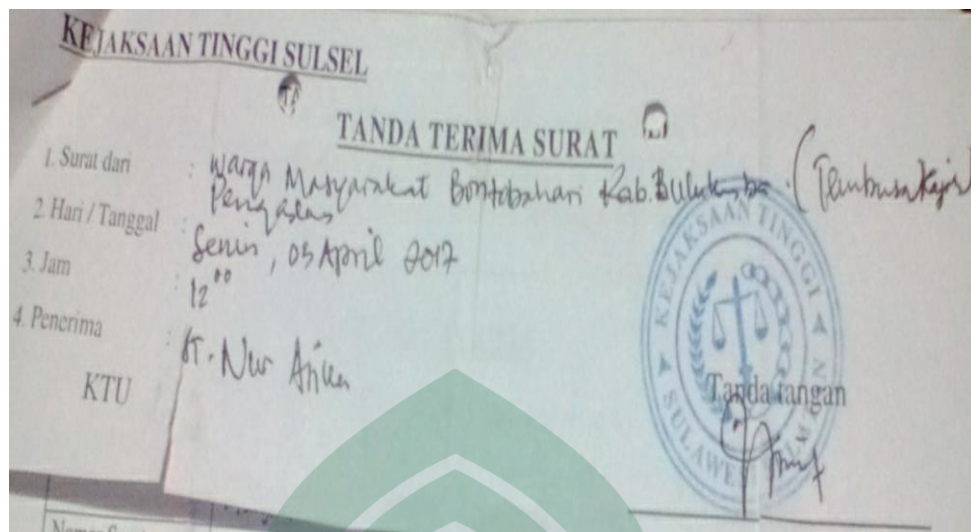 KEJAKSAAN TINGGI SULSEL
TANDA TERIMA SURAT
1. Surat dari : Warga Masyarakat Bontobahari Kab. Bulukumba (Tembusan
2. Hari / Tanggal : Senin, 03 April 2017
3. Jam : 12⁰⁰
4. Penerima :
KTU
Tanda tangan
KEJAKSAAN TINGGI
SULAWESI